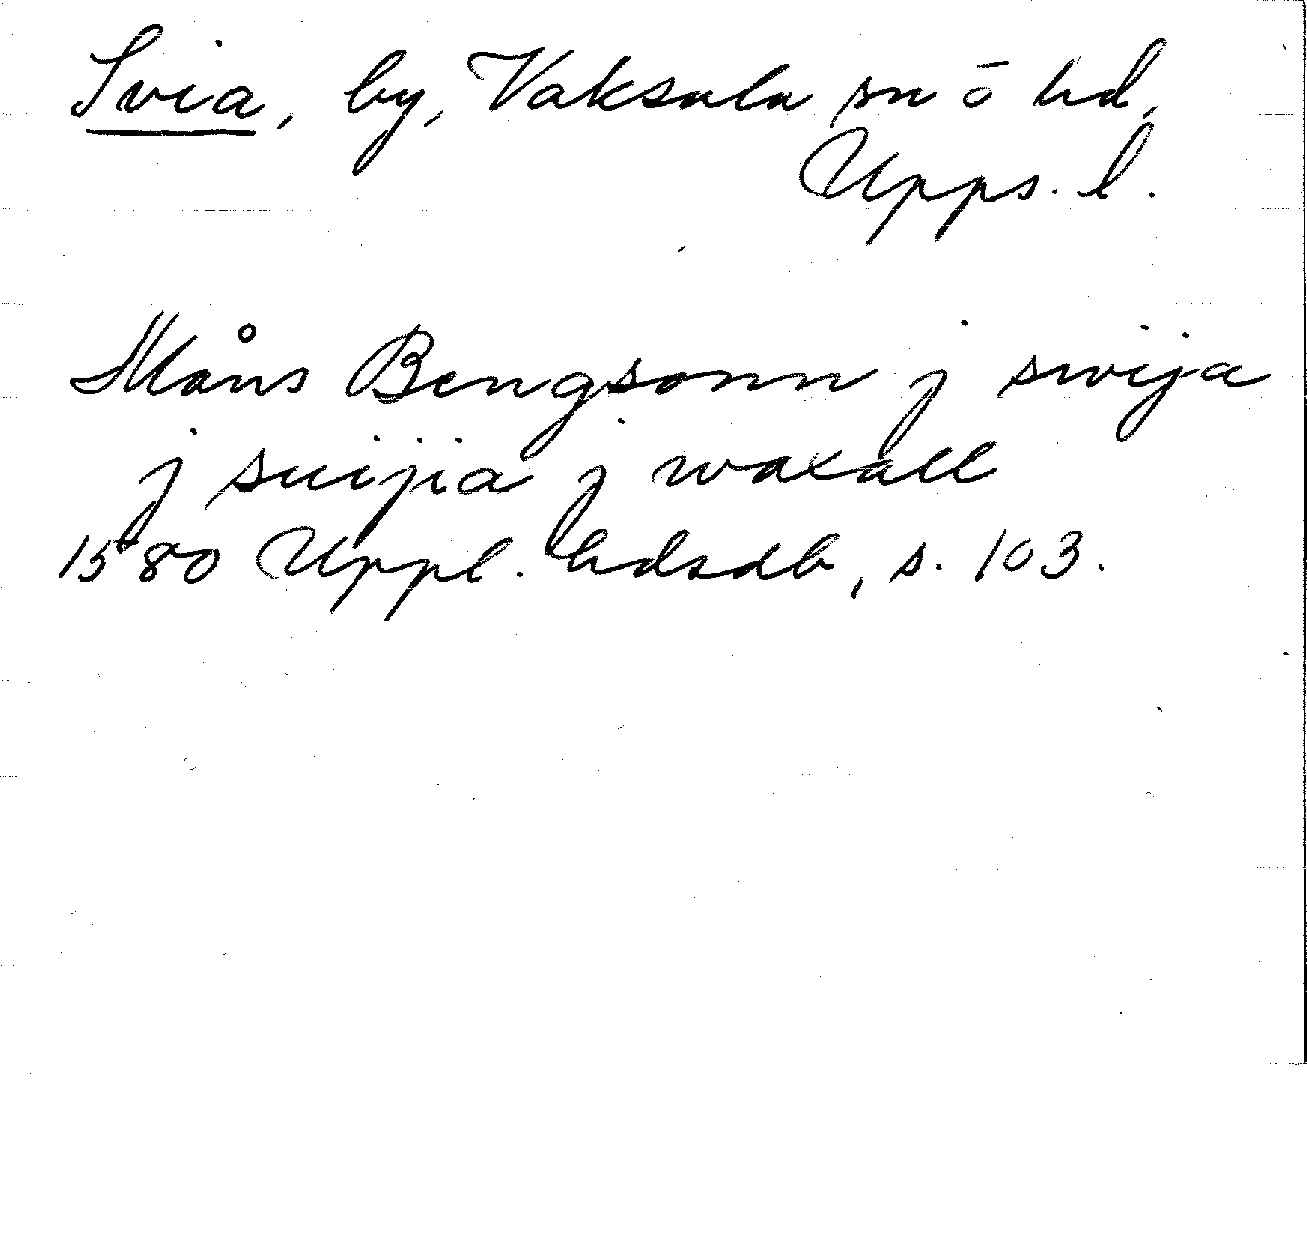 Svia, by, Vaksala sn ō hd,
Upps. l.
Måns Bengsonn j swija
j suijia j waxall
1580 Uppl. hdsdb, s. 103.